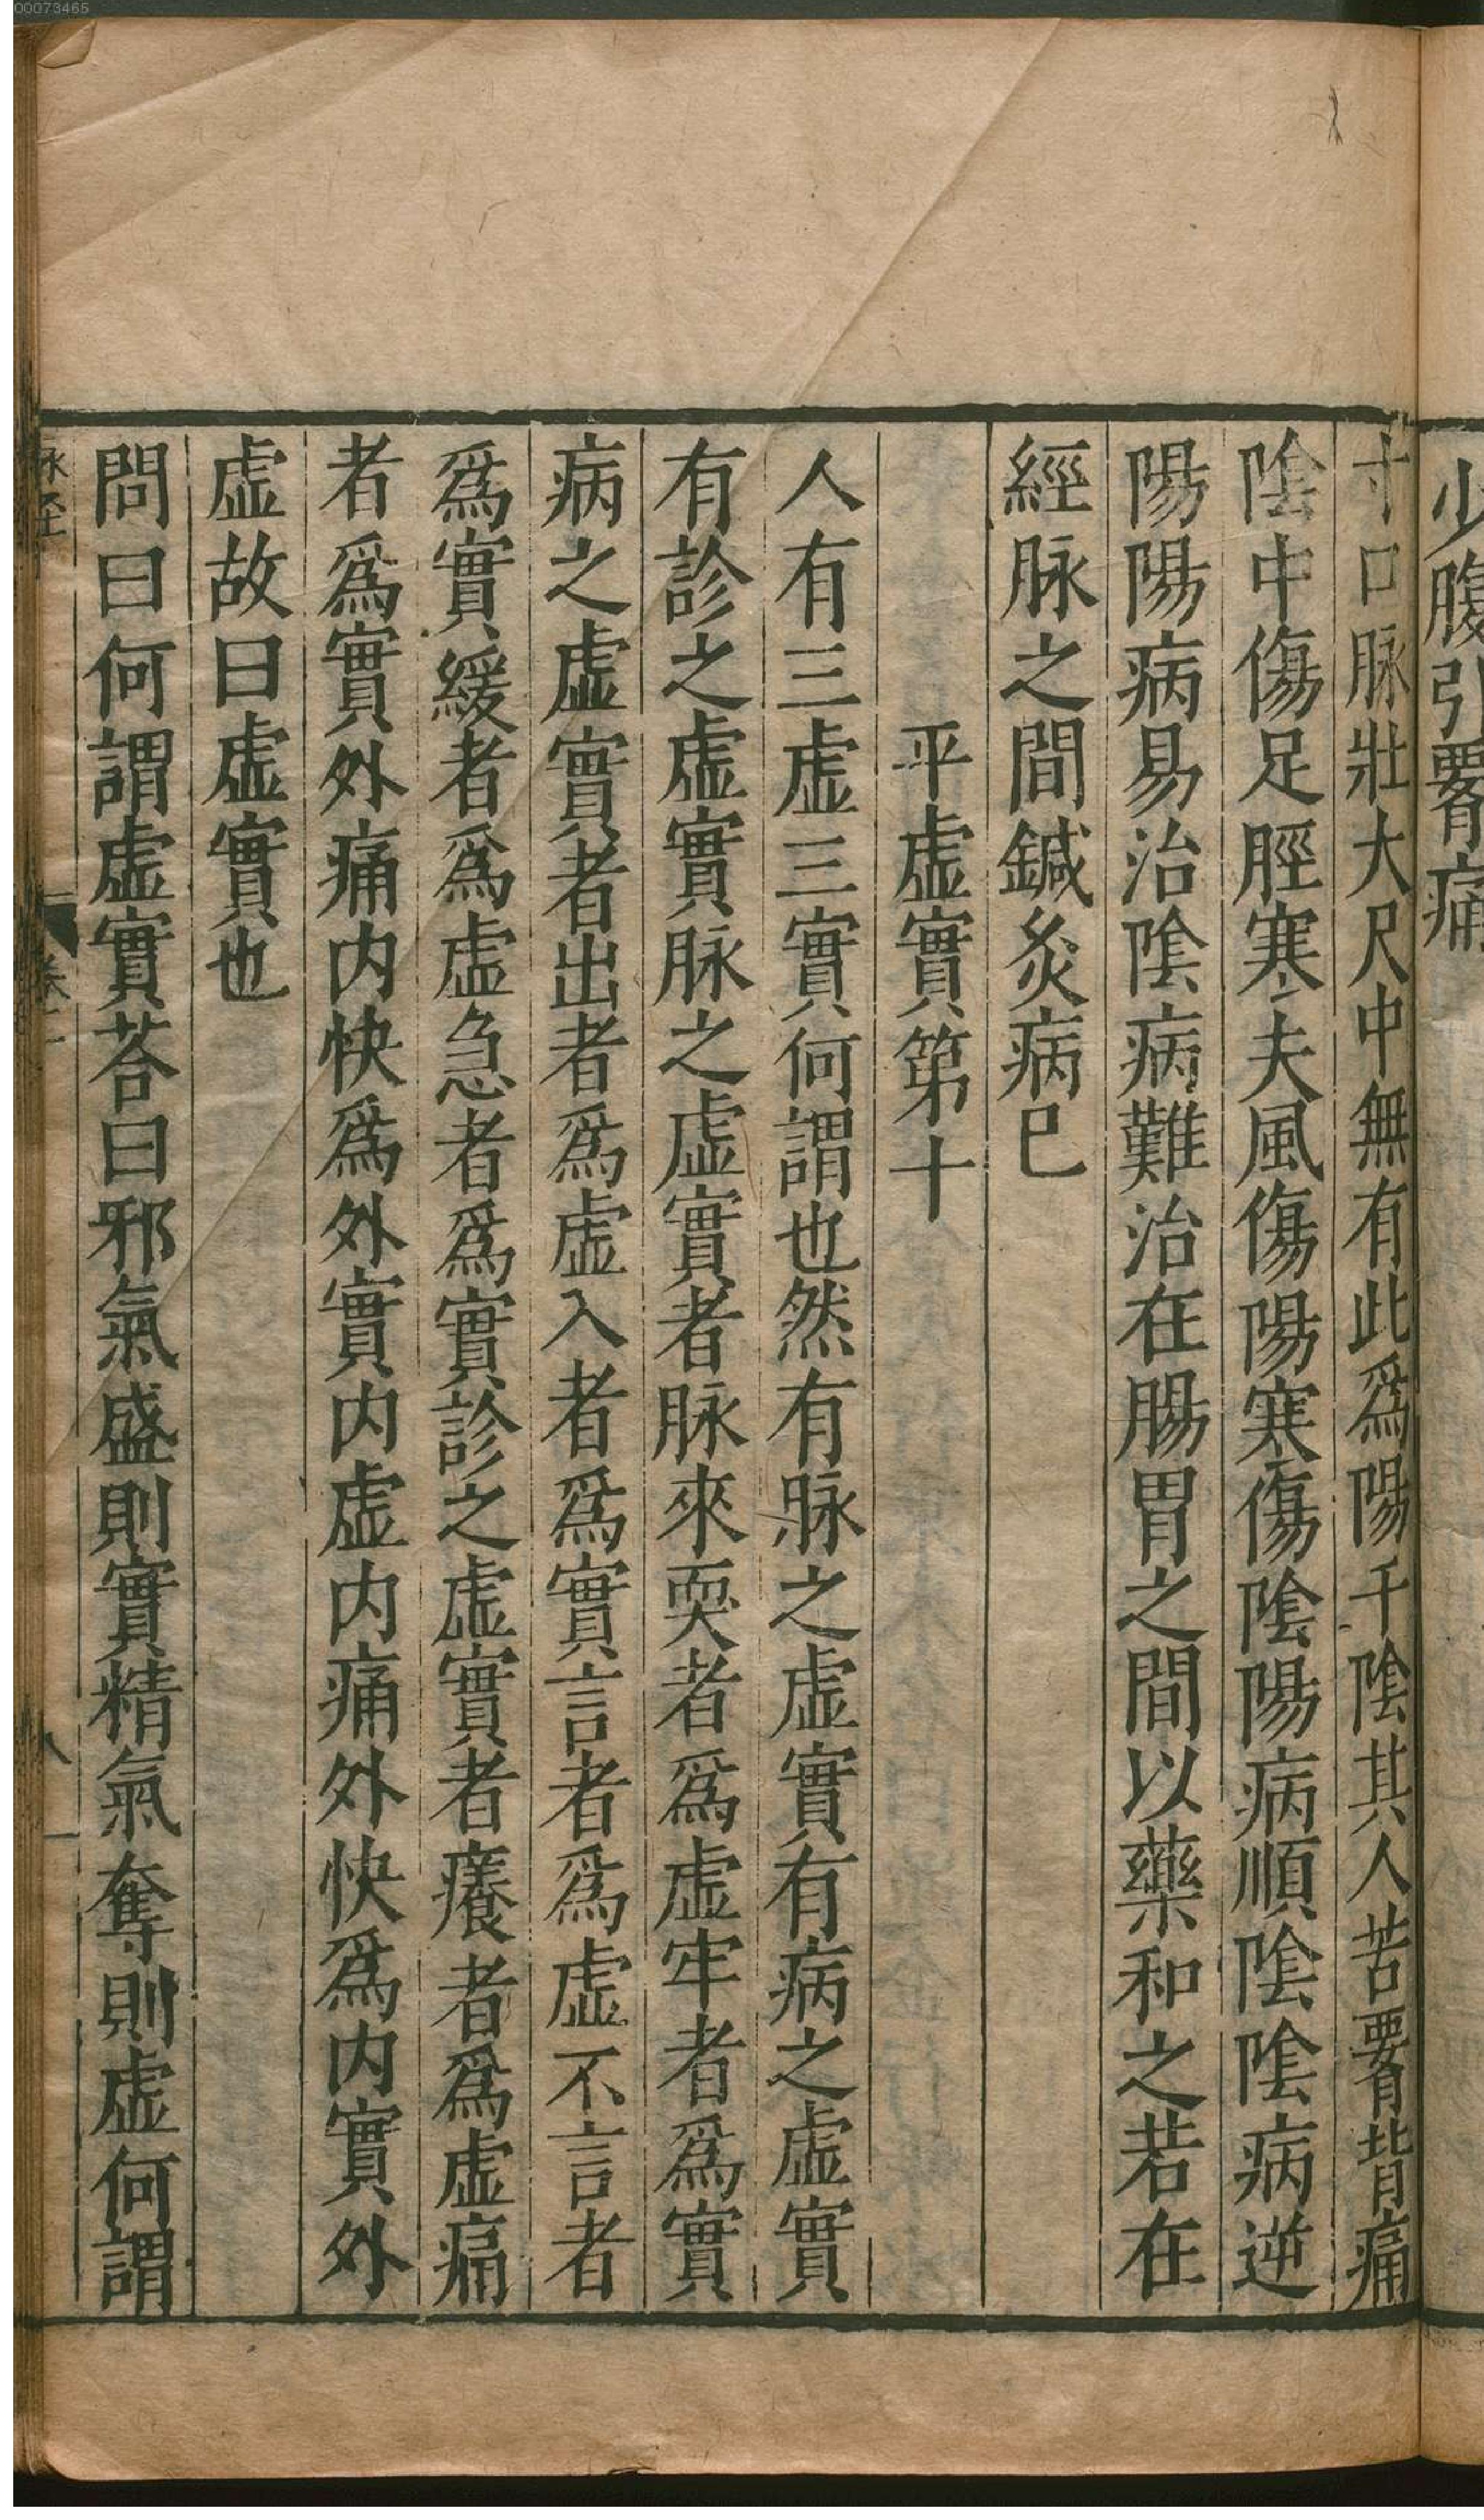 00073465
少腹引䏚痛
寸口脉壯大尺中無有此爲陽干陰其人苦䏚背痛
陰中傷足脛寒夫風傷陽寒傷陰陽病順陰陰病逆
陽陽病易治陰病難治在腸胃之間以藥和之若在
經脉之間鍼灸病已
平虚實第十
人有三虚三實何謂也然有脉之虚實有病之虚實
有診之虚實脉之虚實者脉來耎者爲虚牢者爲實
病之虚實者出者爲虚入者爲實言者爲虚不言者
爲實緩者爲虚急者爲實診之虚實者癢者爲虚痛
者爲實外痛内快爲外實内虚内痛外快爲内實外
虚故曰虚實也
問曰何謂虚實荅曰邪氣盛則實精氣奪則虚何謂
脉經 卷一 八